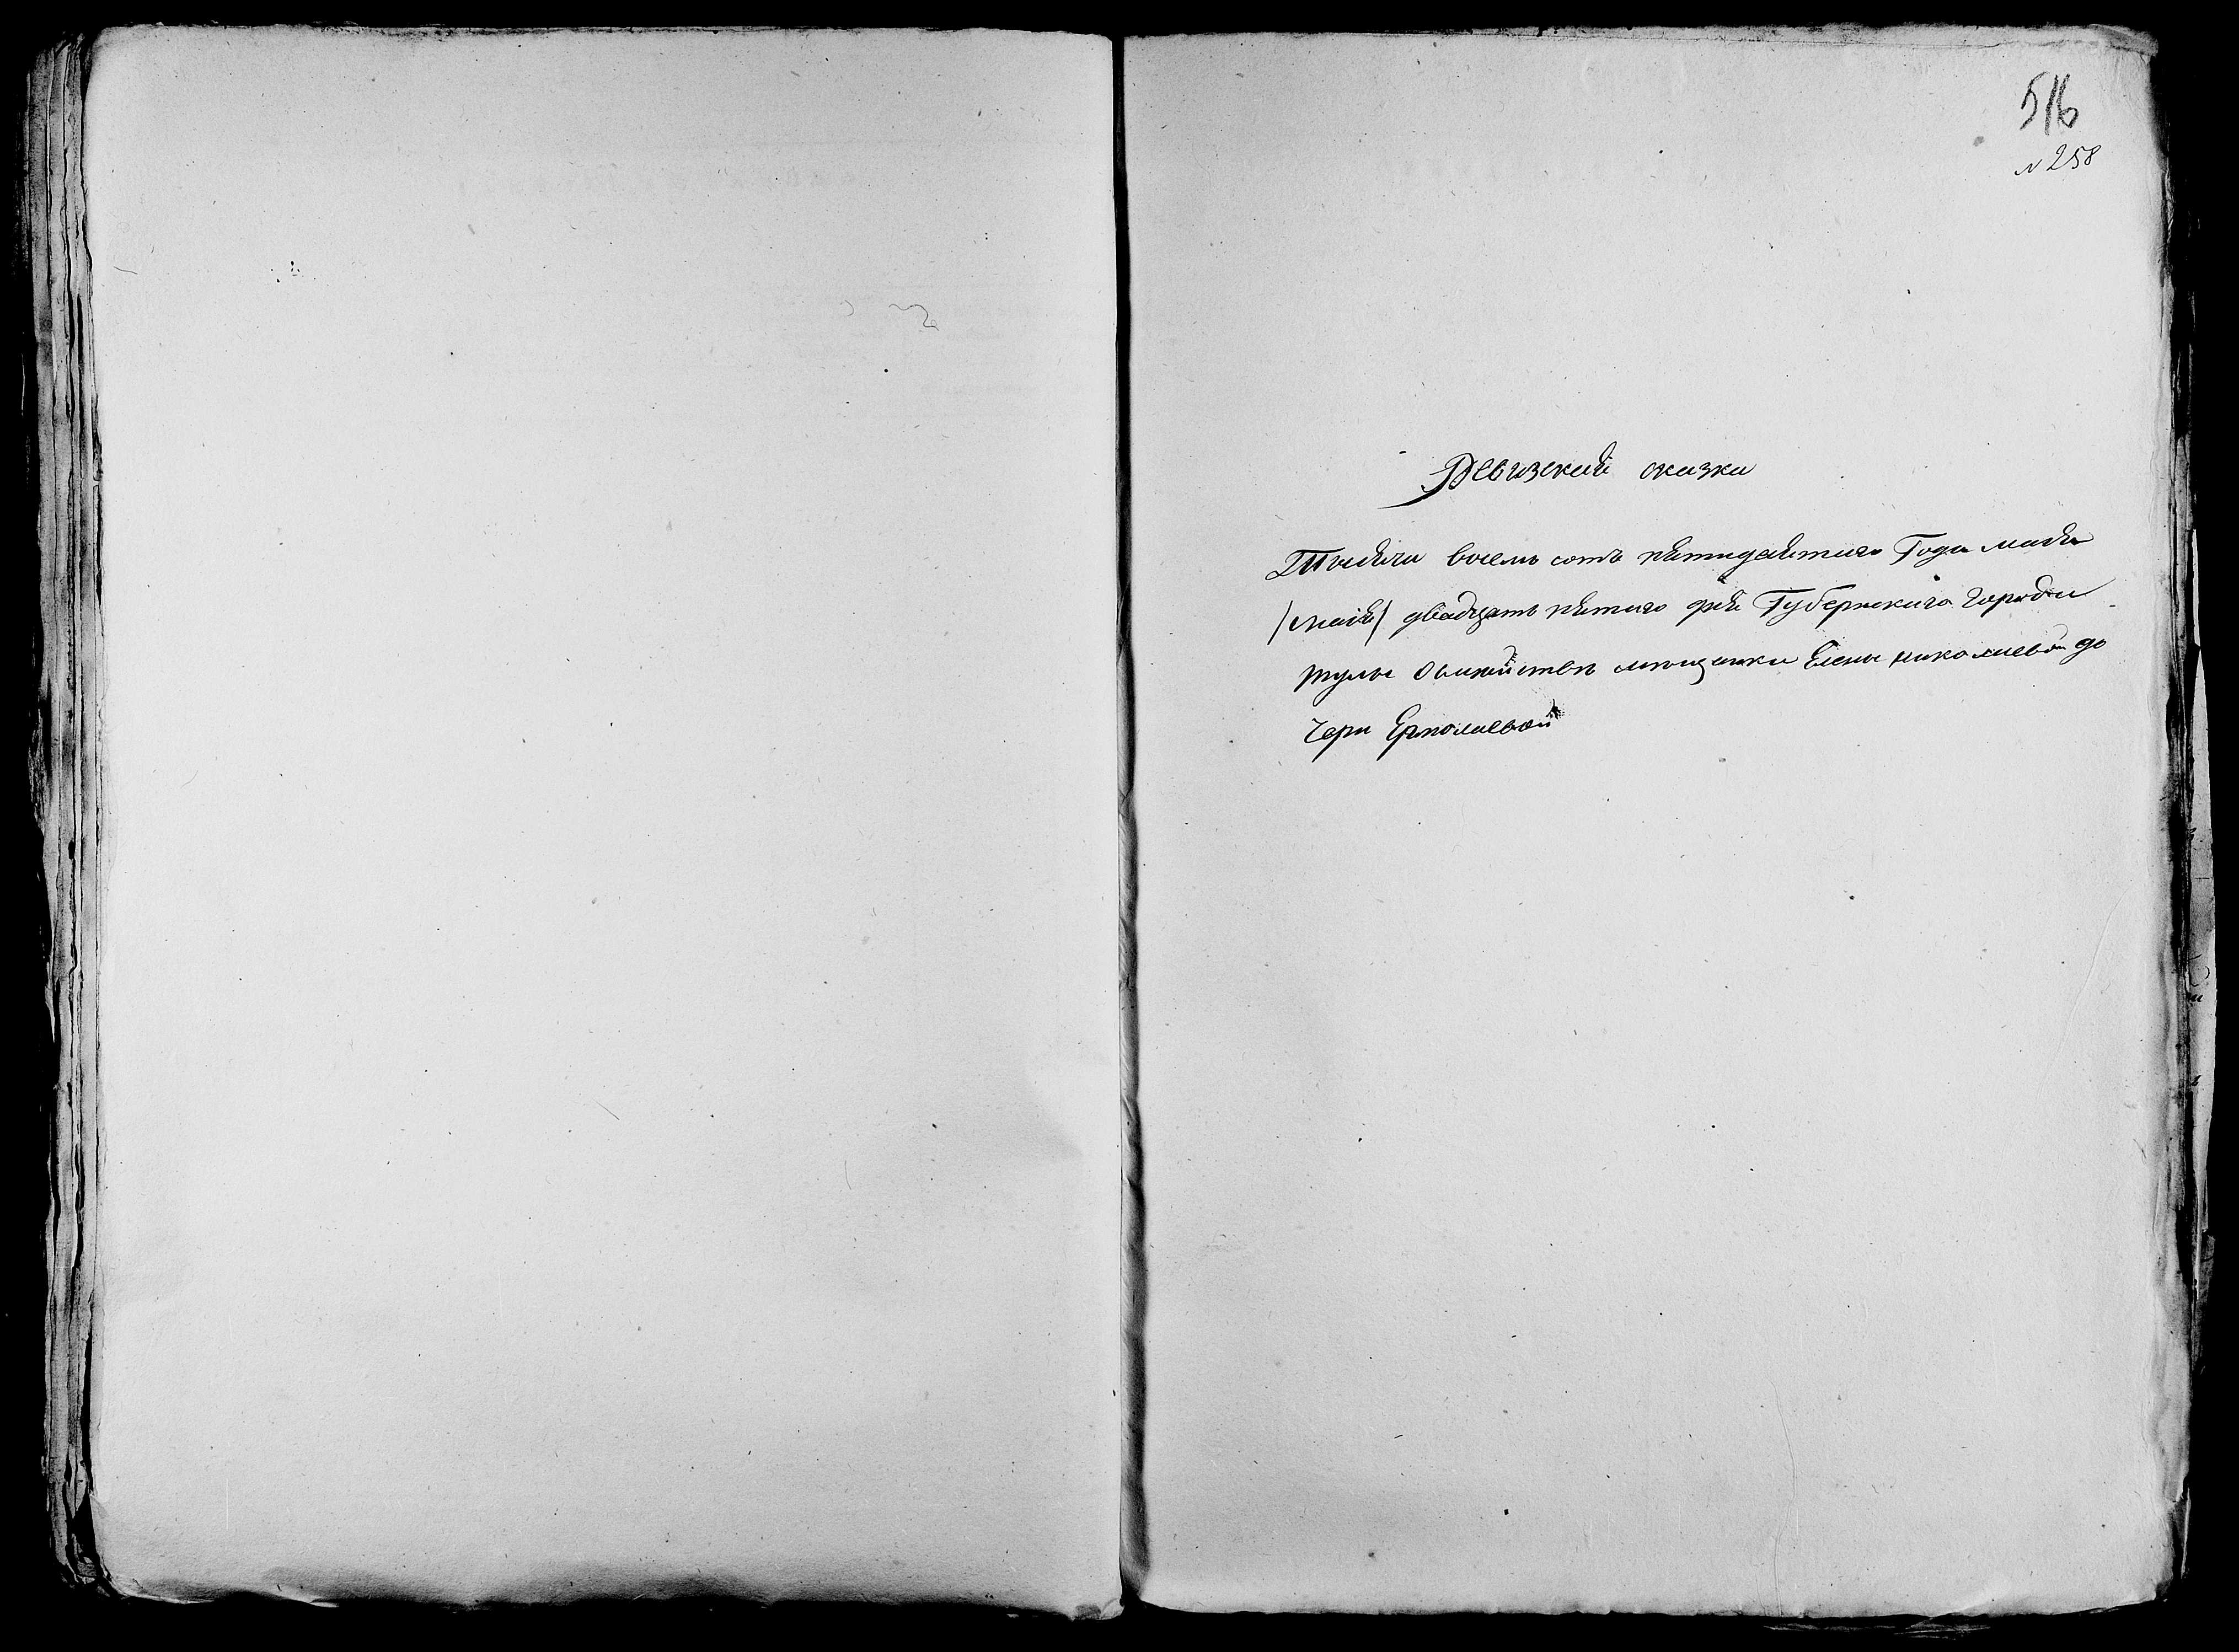 516
№ 258
Ревизская сказка
Тысяча восемь сотъ пятидесятаго Года маия
/маія/ двадцать пятаго дня Губернскаго города
тулы о мещанки Елены николаевой до
чери Ермолаевой